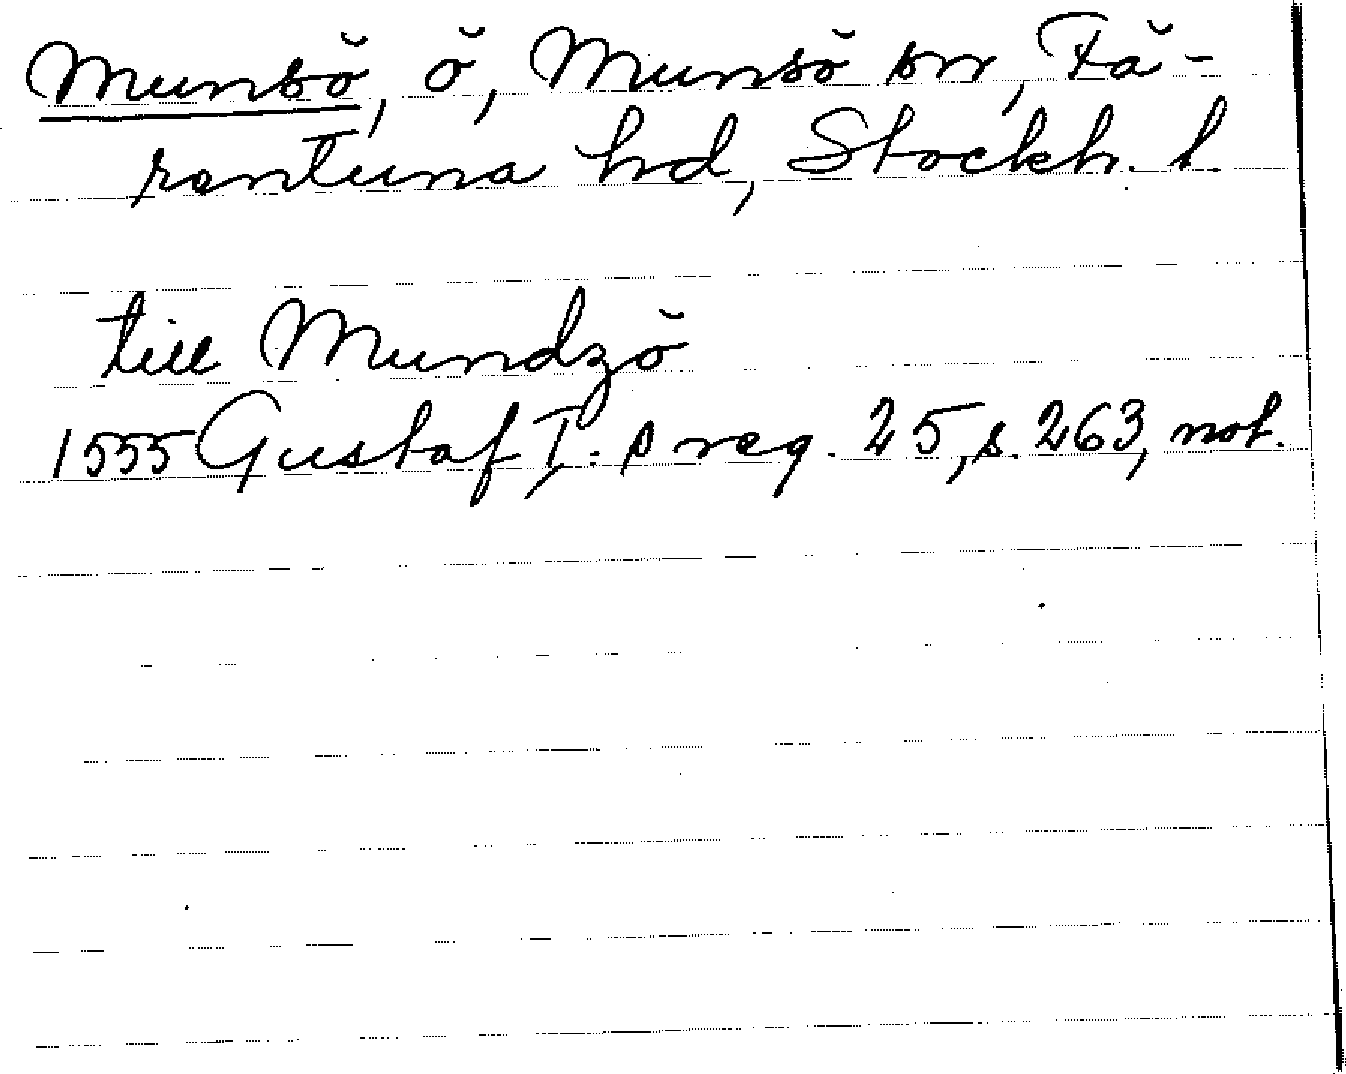 Munsö, ö, Munsö sn, Fä-
rentuna hd, Stockh. l
till Mundzö
1555 Gustaf I:s reg. 25, s. 263, not.